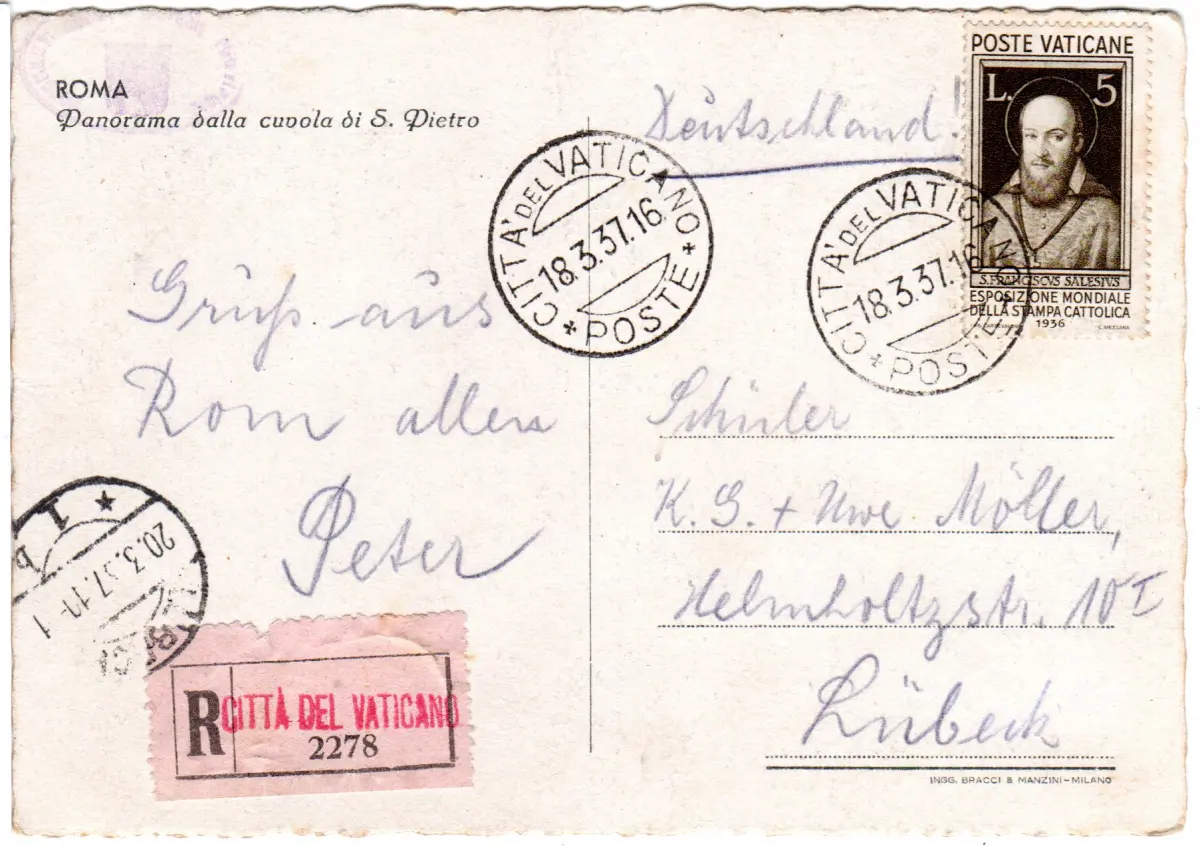 ROMA
Panorama dalla cupola di S. Pietro
Deutschland.
POSTE VATICANE
L. 5
S. FRANCISCVS SALESIVS
ESPOSIZIONE MONDIALE
DELLA STAMPA CATTOLICA
1936
CITTA' DEL VATICANO
18.3.37.16
POSTE
CITTA' DEL VATICANO
18.3.37.16
POSTE
Gruß aus
Rom allen
Peter
Schüler
K. G. + Uwe Möller,
Helmholtzstr. 10 I
Lübeck
20.3.37.
R CITTÀ DEL VATICANO
2278
INGG. BRACCI & MANZINI-MILANO